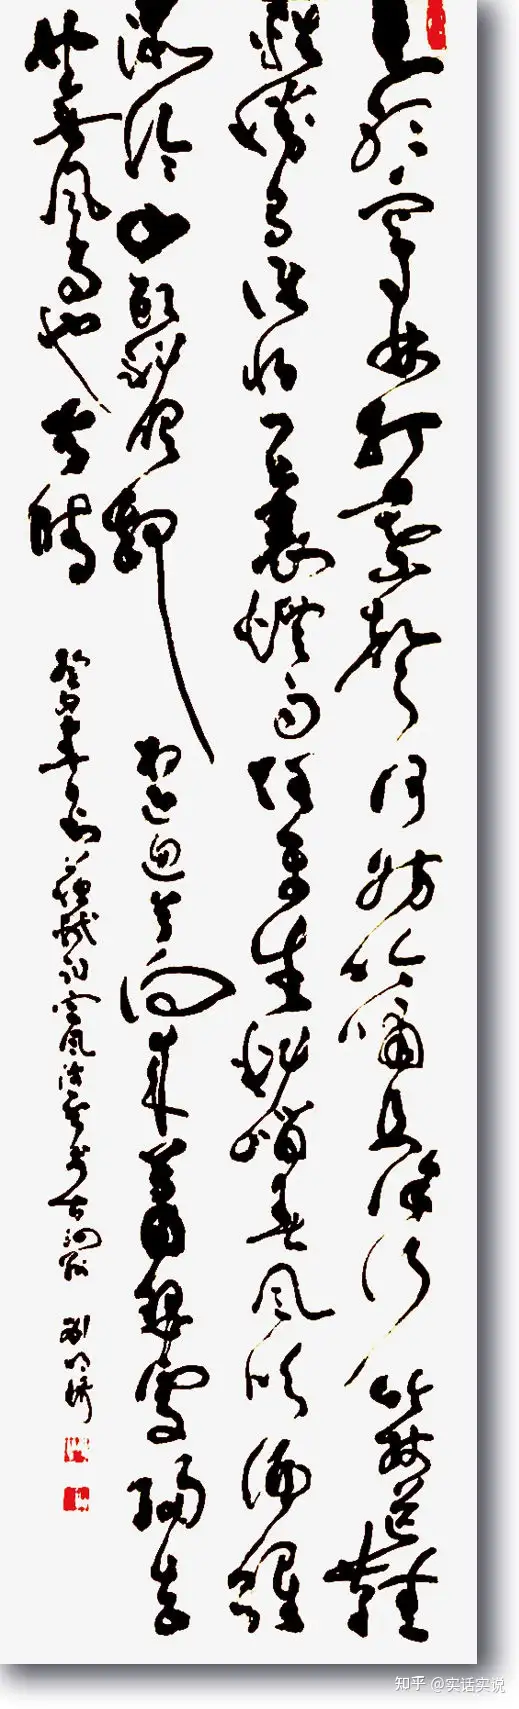 莫听穿林打叶声何妨吟啸且徐行竹杖芒鞋
轻胜马谁怕一蓑烟雨任平生料峭春风吹酒醒
微冷山头斜照却相迎回首向来萧瑟处归去
也无风雨也无晴
苏轼词定风波 古河阳 刘明
知乎 @实话实说